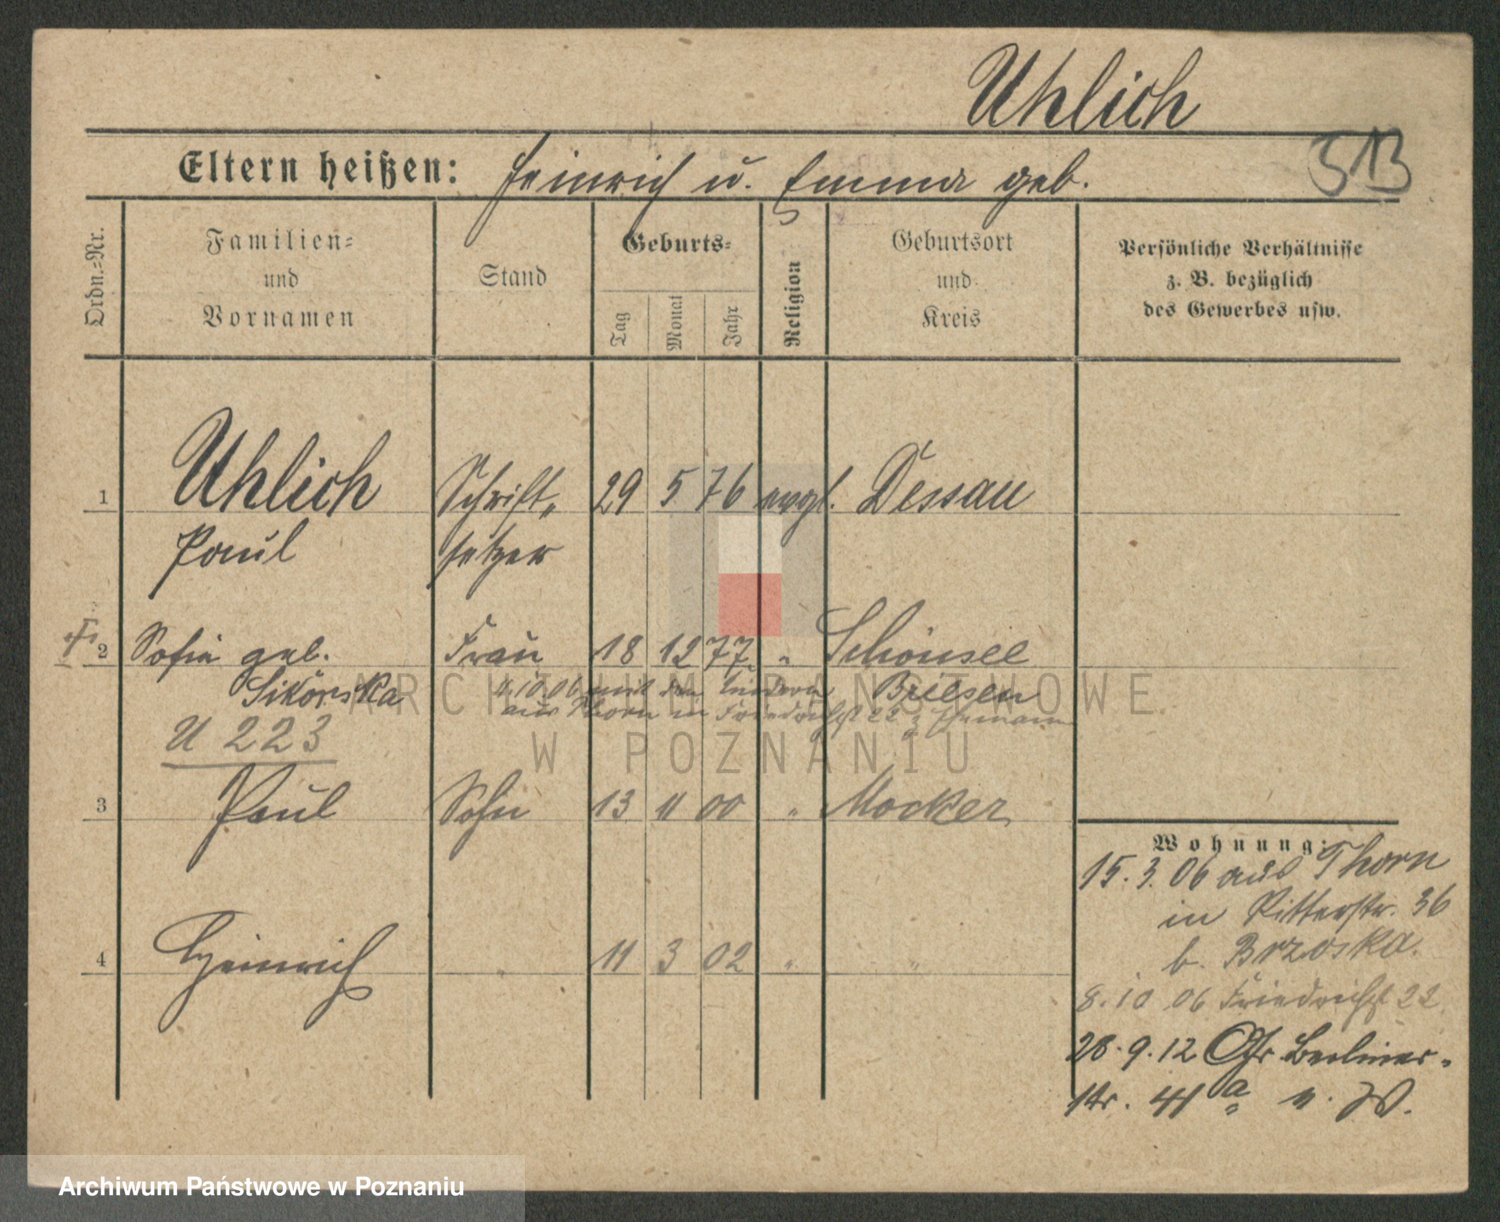 Uhlich
Eltern heißen: Heinrich u. Emma geb.
513
Ordn.-Nr.
Familien-
und
Vornamen
Stand
Geburts-
Tag
Monat
Jahr
Religion
Geburtsort
und
Kreis
Persönliche Verhältnisse
z. B. bezüglich
des Gewerbes usw.
1 Uhlich Schrift- 29 5 76 evgl. Dessau
Paul setzer
2 Sofie geb. Frau 18 12 77 " Schönsee
Sikorska Briesen
4.10.06 mit den Kindern
aus Thorn in Friedrichstr 22 z. Ehemann
U 223
3 Paul Sohn 13 11 00 " Mocker
4 Heinrich " 11 3 02 " "
Wohnung:
15.3.06 aus Thorn
in Ritterstr. 36
b. Brzoska.
8.10 06 Friedrichst 22
28.9.12 Berliner-
str. 41 a n. W.
ARCHIWUM PAŃSTWOWE
W POZNANIU
Archiwum Państwowe w Poznaniu